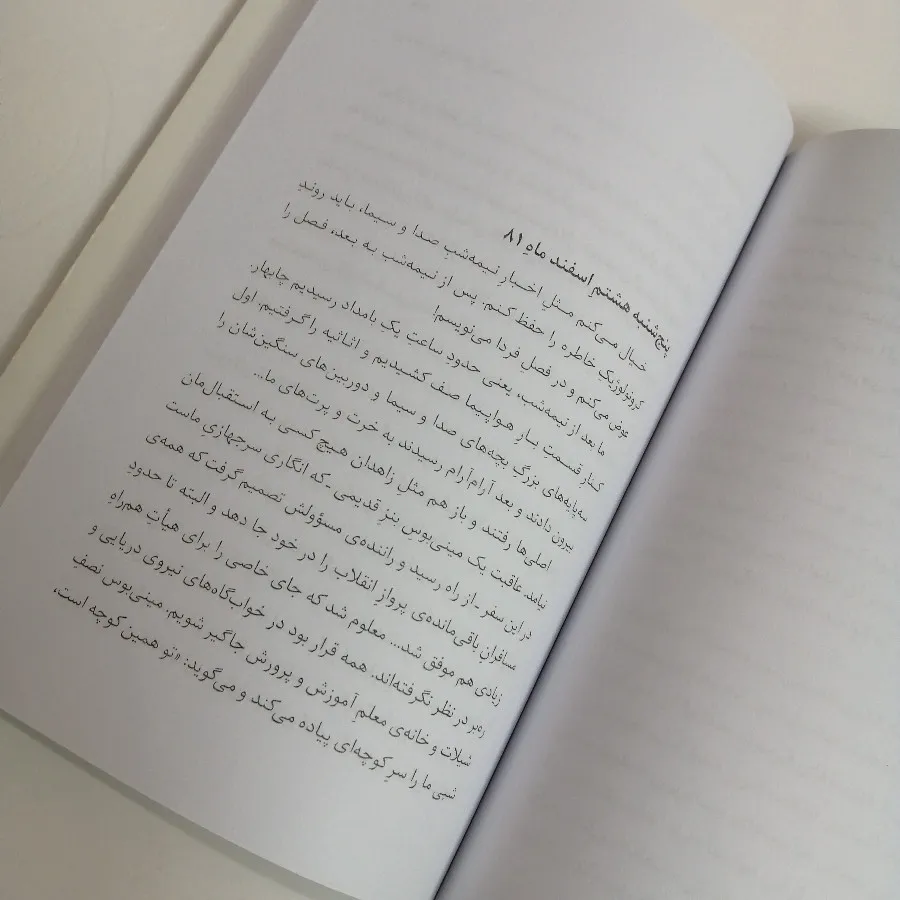 پنج‌شنبه هشتم اسفند ماهِ ۸۱
خیال می‌کنم مثلِ اخبارِ نیمه‌شبِ صدا و سیما، باید روندِ
کرونولوژیکِ خاطره را حفظ کنم. پس از نیمه‌شب به بعد، فصل را
عوض می‌کنم و در فصل فردا می‌نویسم!
ما بعد از نیمه‌شب، یعنی حدودِ ساعتِ یکِ بامداد رسیدیم چابهار.
کنارِ قسمت بارِ هواپیما صف کشیدیم و اثاثیه را گرفتیم. اول
سه‌پایه‌های بزرگِ بچه‌های صدا و سیما و دوربین‌های سنگین‌شان را
بیرون دادند و بعد آرام‌آرام رسیدند به خرت و پرت‌های ما...
اصلی‌ها رفتند و باز هم مثلِ زاهدان هیچ کسی به استقبال‌مان
نیامد. عاقبت یک مینی‌بوس بنزِ قدیمی -که انگاری سرجهازیِ ماست
در این سفر- از راه رسید و راننده‌ی مسؤولش تصمیم گرفت که همه‌ی
مسافرانِ باقی‌مانده‌ی پروازِ انقلاب را در خود جا دهد و البته تا حدودِ
زیادی هم موفق شد... معلوم شد که جای خاصی را برای هیأتِ هم‌راهِ
ره‌بر در نظر نگرفته‌اند. همه قرار بود در خواب‌گاه‌های نیروی دریایی و
شیلات و خانه‌ی معلمِ آموزش و پرورش جاگیر شویم. مینی‌بوس نصفِ
شبی ما را سرِ کوچه‌ای پیاده می‌کند و می‌گوید: «تو همین کوچه است،